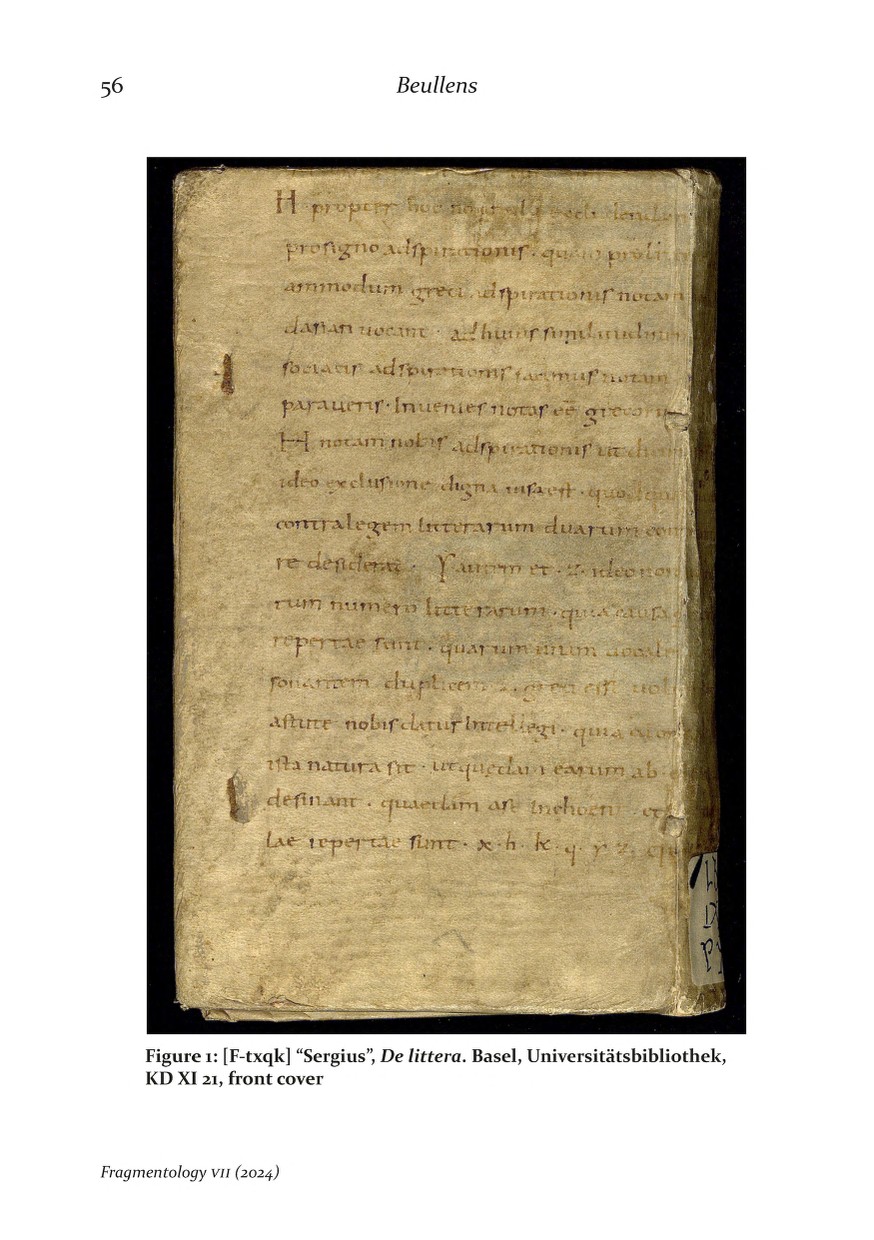 56
Beullens
H propter hoc
pro signo adspirationis ·
ammodum greci adspirationis notam
dasian uocant · ad huius similitudinem
sociatis adspirationis facimus notam
paraueris · Inuenies notas eē grecoru
H notam nobis adspirationis
ideo exclusione digna uisa est ·
contra legem litterarum duarum
re desiderat · Y autem et · z · ideo non
rum numero litterarum · quia causa
repertae sunt · quarum unum uocale
sonantem duplicem · z · greci esse
astute nobis datur Intellegi · quia
ista natura sit · ut quedam earum ab
desinant · quaedam ast Inchoent ·
lae repertae sunt · x · h · k · q · y · z ·
Figure 1: [F-txqk] “Sergius”, De littera. Basel, Universitätsbibliothek,
KD XI 21, front cover
Fragmentology VII (2024)